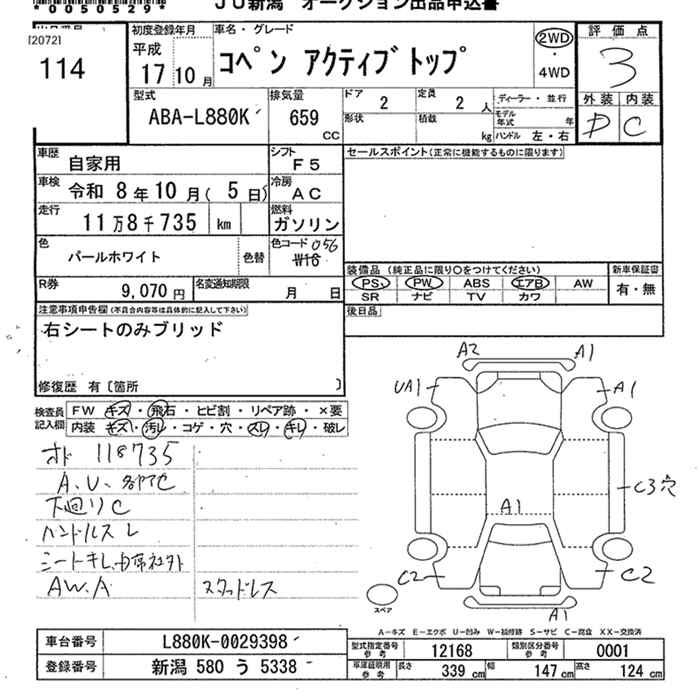 *0050529*
JU新潟 オークション出品申込書
(20721
114
初度登録年月
平成
17年10月
車名・グレード
コペン アクティブトップ
2WD
・
4WD
評価点
3
外装 内装
D C
型式
ABA-L880K
排気量
659
CC
ドア
2
定員
2人
形状
積載
kg
ディーラー・並行
モデル年式 年
ハンドル 左・右
車歴
自家用
シフト
F5
セールスポイント(正常に機能するものに限ります)
車検
令和 8年10月(5日)
冷房
AC
走行
11万8千735 km
燃料
ガソリン
色
パールホワイト
色替
色コード 056
R券
9,070円
名変通知期限
月 日
装備品(純正品に限り○をつけてください)
PS PW ABS エアB AW
SR ナビ TV カワ
新車保証書
有・無
後日品
注意事項申告欄(不具合内容等は具体的に記入して下さい)
右シートのみブリッド
修復歴 有〔箇所 〕
検査員記入欄
FW キズ・飛石・ヒビ割・リペア跡・×要
内装 キズ・汚レ・コゲ・穴・スレ・キレ・破レ
オド 118735
A.U.各所C
下廻りC
ハンドルスレ
シートキレ.
AW.A スタッドレス
A2 A1
UA1 A1
C3穴
A1
C2 C2
A1
スペア
A-キズ E-エクボ U-凹み W-補修跡 S-サビ C-腐食 XX-交換済
車台番号
L880K-0029398
登録番号
新潟 580 う 5338
型式指定番号
参考
12168
類別区分番号
参考
0001
車庫証明用
参考
長さ 339 cm 幅 147 cm 高さ 124 cm